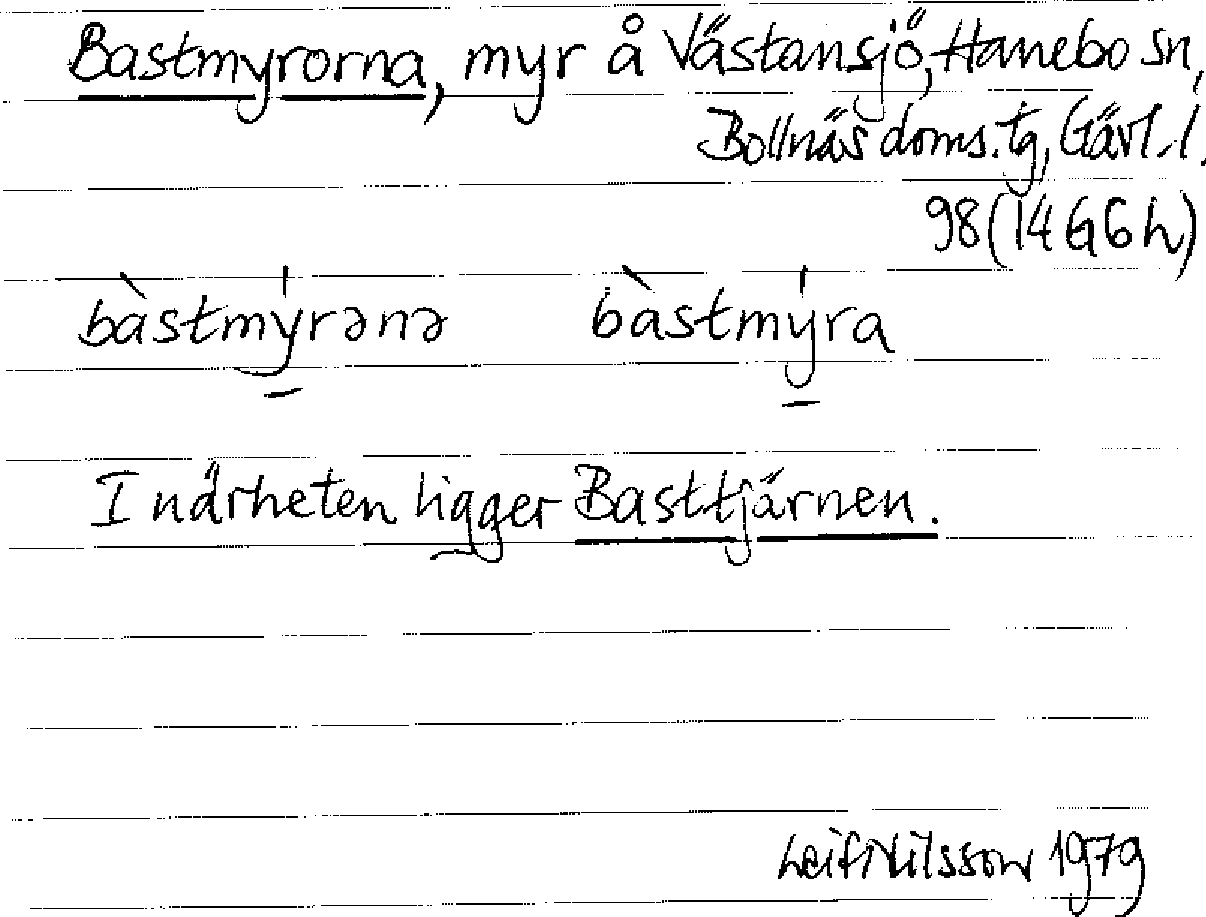 Bastmyrorna, myr å Västansjö, Hanebo sn,
Bollnäs doms. tg, Gävl. l.
98 (14 G 6 h)
bàstmýrənə bàstmýra
I närheten ligger Basttjärnen.
Leif Nilsson 1979